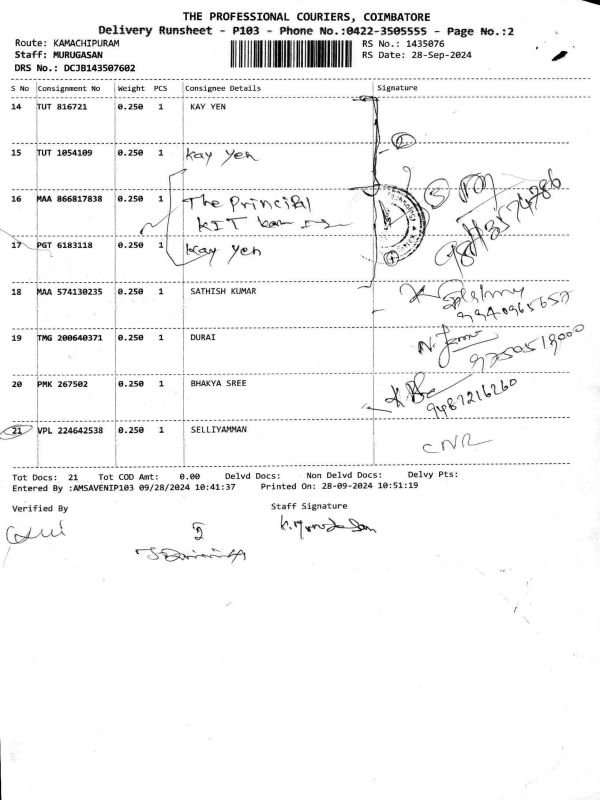 THE PROFESSIONAL COURIERS, COIMBATORE
Delivery Runsheet - P103 - Phone No.:0422-3505555 - Page No.:2
Route: KAMACHIPURAM RS No.: 1435076
Staff: MURUGASAN RS Date: 28-Sep-2024
DRS No.: DCJB143507602
S No Consignment No Weight PCS Consignee Details Signature
14 TUT 816721 0.250 1 KAY YEN
15 TUT 1054109 0.250 1 Kay Yen
16 MAA 866817838 0.250 1 The Principal
KIT
17 PGT 6183118 0.250 1 Kay Yen
18 MAA 574130235 0.250 1 SATHISH KUMAR
9940965657
19 TMG 200640371 0.250 1 DURAI
9750519000
20 PMK 267502 0.250 1 BHAKYA SREE
9487216260
21 VPL 224642538 0.250 1 SELLIYAMMAN
CNR
Tot Docs: 21 Tot COD Amt: 0.00 Delvd Docs: Non Delvd Docs: Delvy Pts:
Entered By :AMSAVENIP103 09/28/2024 10:41:37 Printed On: 28-09-2024 10:51:19
Verified By Staff Signature